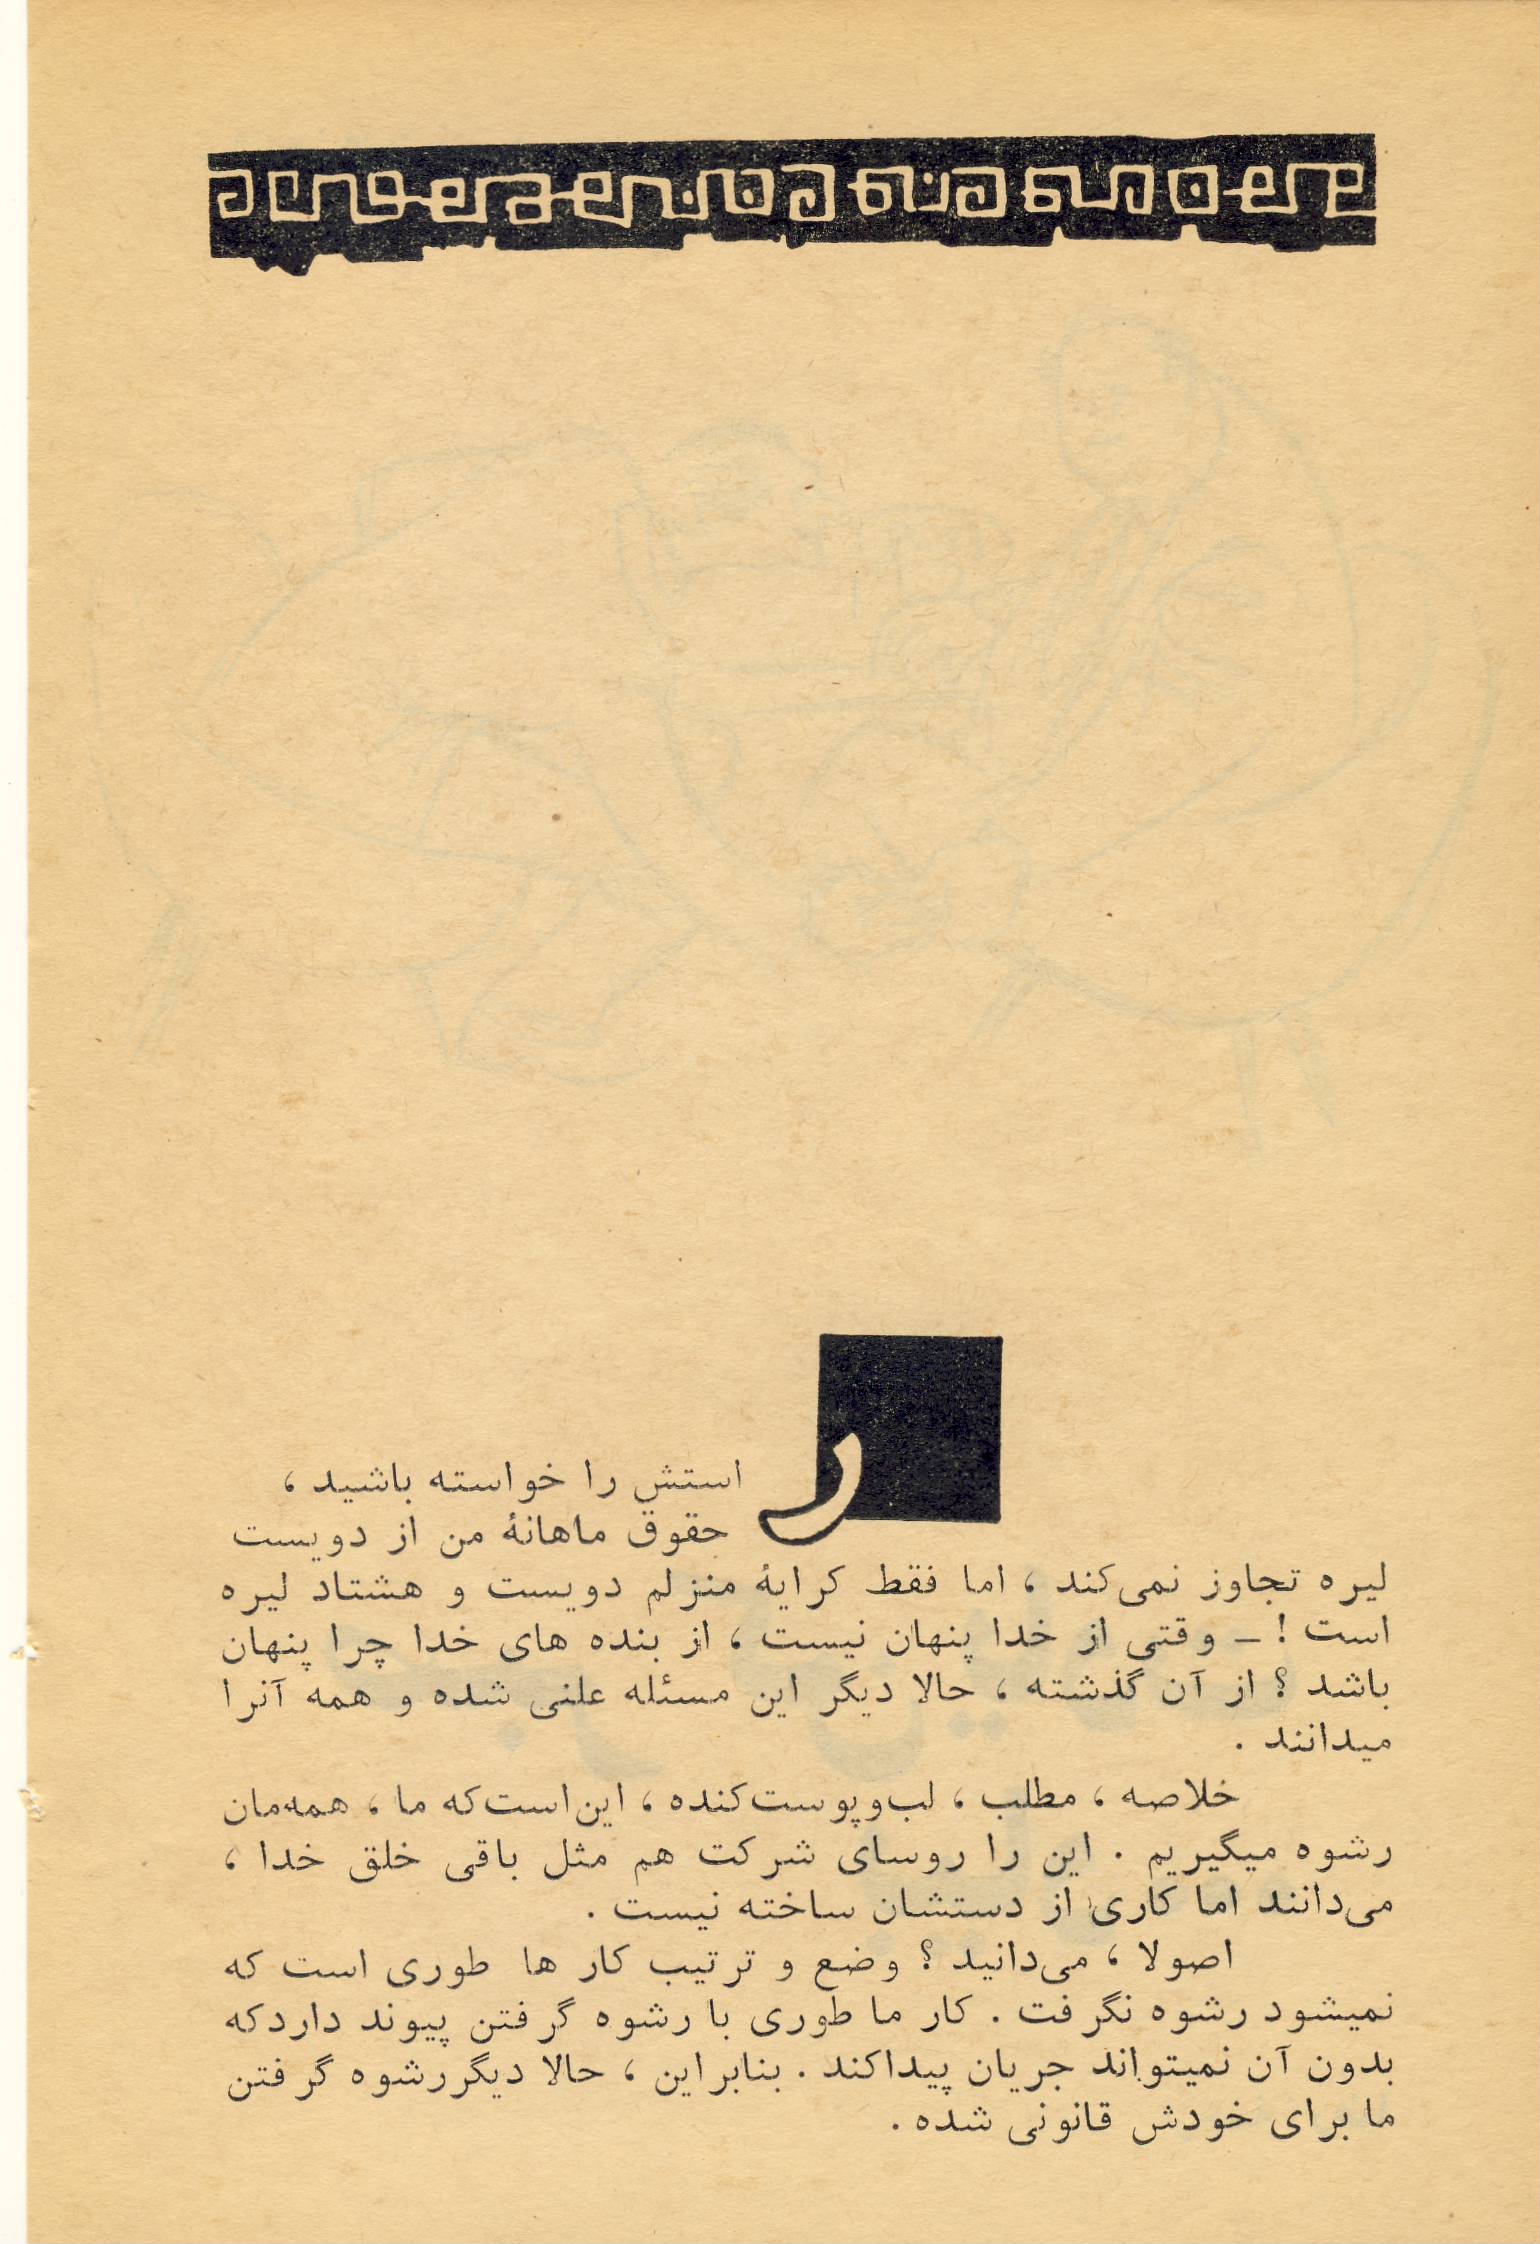 راستش را خواسته باشید ،
حقوق ماهانهٔ من از دویست
لیره تجاوز نمی‌کند ، اما فقط کرایهٔ منزلم دویست و هشتاد لیره
است ! ــ وقتی از خدا پنهان نیست ، از بنده های خدا چرا پنهان
باشد ؟ از آن گذشته ، حالا دیگر این مسئله علنی شده و همه آنرا
میدانند .
خلاصه ، مطلب ، لب‌وپوست‌کنده ، این‌است‌که ما ، همه‌مان
رشوه میگیریم . این را روسای شرکت هم مثل باقی خلق خدا ،
می‌دانند اما کاری از دستشان ساخته نیست .
اصولا ، می‌دانید ؟ وضع و ترتیب کار ها طوری است که
نمیشود رشوه نگرفت . کار ما طوری با رشوه گرفتن پیوند داردکه
بدون آن نمیتواند جریان پیداکند . بنابراین ، حالا دیگررشوه گرفتن
ما برای خودش قانونی شده .